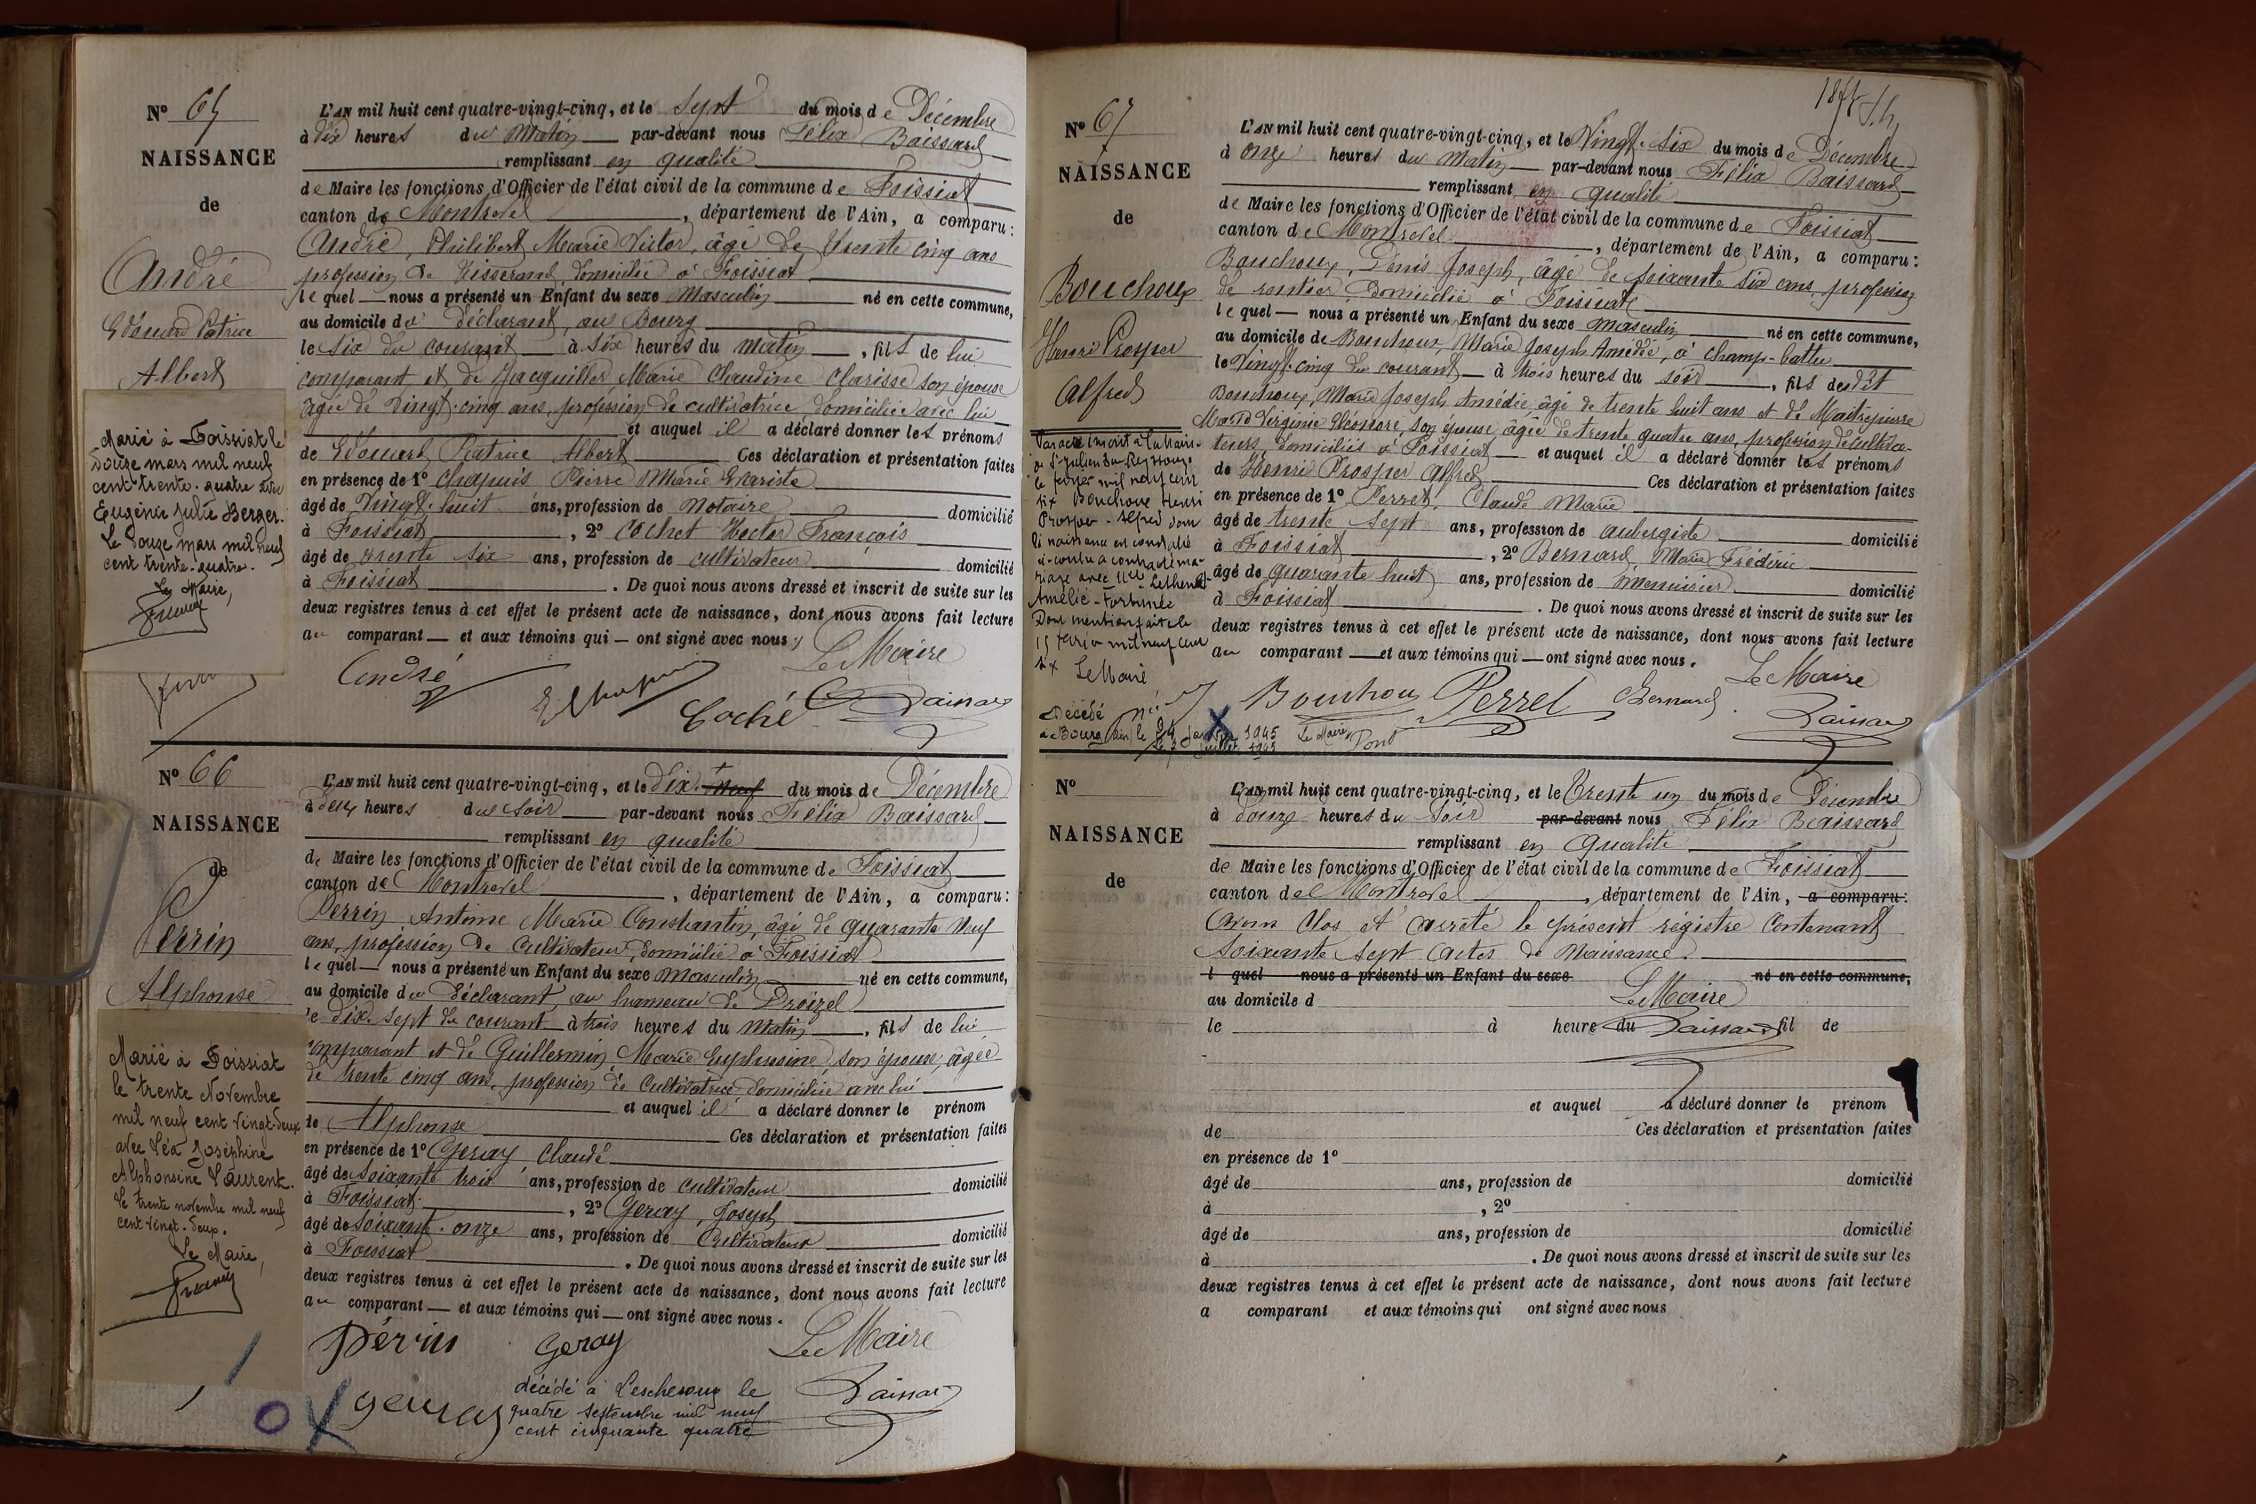 N° 65
NAISSANCE
de
André
Edouard Patrice
Albert
Marié à Foissiat le
douze mars mil neuf
cent trente-quatre avec
Eugénie Julie Berger.
Le douze mars mil neuf
cent trente-quatre.
Le Maire,
L'AN mil huit cent quatre-vingt-cinq, et le Sept du mois de Décembre
à dix heures du Matin par-devant nous Félix Baissard
remplissant en qualité
de Maire les fonctions d'Officier de l'état civil de la commune de Foissiat
canton de Montrevel, département de l'Ain, a comparu:
André, Philibert Marie Victor, âgé de trente cinq ans
profession de Tisserand, domicilié à Foissiat
lequel nous a présenté un Enfant du sexe Masculin né en cette commune,
au domicile du déclarant, au Bourg
le Six du courant à Six heures du Matin, fils de lui
comparant et de Jacquiller Marie Claudine Clarisse son épouse
âgée de Vingt-cinq ans, profession de cultivatrice, domiciliée avec lui
et auquel il a déclaré donner les prénoms
de Edouard Patrice Albert Ces déclaration et présentation faites
en présence de 1° Chapuis Pierre Marie Evariste
âgé de Vingt-huit ans, profession de Notaire domicilié
à Foissiat, 2° Cochet Hector François
âgé de trente six ans, profession de cultivateur domicilié
à Foissiat. De quoi nous avons dressé et inscrit de suite sur les
deux registres tenus à cet effet le présent acte de naissance, dont nous avons fait lecture
au comparant et aux témoins qui ont signé avec nous.
Le Maire
André
Cochet Baissard
N° 66
NAISSANCE
de
Perrin
Alphonse
Marié à Foissiat
le trente Novembre
mil neuf cent vingt-deux
avec Léa Joséphine
Alphonsine Laurent.
Le trente novembre mil neuf
cent vingt-deux.
Le Maire,
L'AN mil huit cent quatre-vingt-cinq, et le dix-neuf du mois de Décembre
à deux heures du soir par-devant nous Félix Baissard
remplissant en qualité
de Maire les fonctions d'Officier de l'état civil de la commune de Foissiat
canton de Montrevel, département de l'Ain, a comparu:
Perrin Antoine Marie Constantin, âgé de quarante neuf
ans, profession de Cultivateur, domicilié à Foissiat
lequel nous a présenté un Enfant du sexe Masculin né en cette commune,
au domicile du déclarant au hameau de Proizel
le dix-sept du courant à trois heures du Matin, fils de lui
comparant et de Guillermin, Marie Euphrosine, son épouse, âgée
de trente cinq ans, profession de Cultivatrice domiciliée avec lui
et auquel il a déclaré donner le prénom
de Alphonse Ces déclaration et présentation faites
en présence de 1° Geray Claude
âgé de soixante trois ans, profession de cultivateur domicilié
à Foissiat, 2° Geray, Joseph
âgé de soixante-onze ans, profession de Cultivateur domicilié
à Foissiat. De quoi nous avons dressé et inscrit de suite sur les
deux registres tenus à cet effet le présent acte de naissance, dont nous avons fait lecture
au comparant et aux témoins qui ont signé avec nous.
Perrin Geray Le Maire
Geray Baissard
décédé à Lescheroux le
quatre septembre mil neuf
cent cinquante quatre
N° 67
NAISSANCE
de
Bouchoux
Henri Prosper
Alfred
Par acte inscrit à la Mairie
de St Julien sur Reyssouze
le février mil neuf cent
six Bouchoux Henri
Prosper-Alfred dont
la naissance est constatée
ci-contre a contracté ma-
riage avec Mlle
Amélie-Fortunée
Dont mention faite le
15 février mil neuf cent
six Le Maire
Décédé
à Bourg (Ain) le 24 janvier 1945
juillet 1945 Le Maire,
L'AN mil huit cent quatre-vingt-cinq, et le Vingt-six du mois de Décembre
à onze heures du Matin par-devant nous Félix Baissard
remplissant en qualité
de Maire les fonctions d'Officier de l'état civil de la commune de Foissiat
canton de Montrevel, département de l'Ain, a comparu:
Bouchoux, Denis Joseph, âgé de soixante six ans, profession
de rentier, domicilié à Foissiat
lequel nous a présenté un Enfant du sexe masculin né en cette commune,
au domicile de Bouchoux, Marie Joseph Amédée, à champ-battu
le Vingt-cinq du courant à trois heures du soir, fils dudit
Bouchoux, Marie Joseph Amédée âgé de trente huit ans et de Maitrepierre
Marie Virginie Eléonore, son épouse âgée de trente quatre ans, profession de cultiva-
teurs, domiciliés à Foissiat et auquel il a déclaré donner les prénoms
de Henri Prosper Alfred Ces déclaration et présentation faites
en présence de 1° Perret, Claude Marie
âgé de trente sept ans, profession de aubergiste domicilié
à Foissiat, 2° Bernard, Marie Frédéric
âgé de quarante huit ans, profession de menuisier domicilié
à Foissiat. De quoi nous avons dressé et inscrit de suite sur les
deux registres tenus à cet effet le présent acte de naissance, dont nous avons fait lecture
au comparant et aux témoins qui ont signé avec nous.
Le Maire
Bouchoux Perret Bernard
Baissard
N°
NAISSANCE
de
L'AN mil huit cent quatre-vingt-cinq, et le Trente un du mois de Décembre
à douze heures du soir par-devant nous Félix Baissard
remplissant en qualité
de Maire les fonctions d'Officier de l'état civil de la commune de Foissiat
canton de Montrevel, département de l'Ain, a comparu:
Avons Clos et arrêté le présent régistre contenant
Soixante Sept actes de Naissance.
l quel nous a présenté un Enfant du sexe né en cette commune,
au domicile d Le Maire
le à heure du Baissard fil de
et auquel a déclaré donner le prénom
de Ces déclaration et présentation faites
en présence de 1°
âgé de ans, profession de domicilié
à , 2°
âgé de ans, profession de domicilié
à . De quoi nous avons dressé et inscrit de suite sur les
deux registres tenus à cet effet le présent acte de naissance, dont nous avons fait lecture
a comparant et aux témoins qui ont signé avec nous